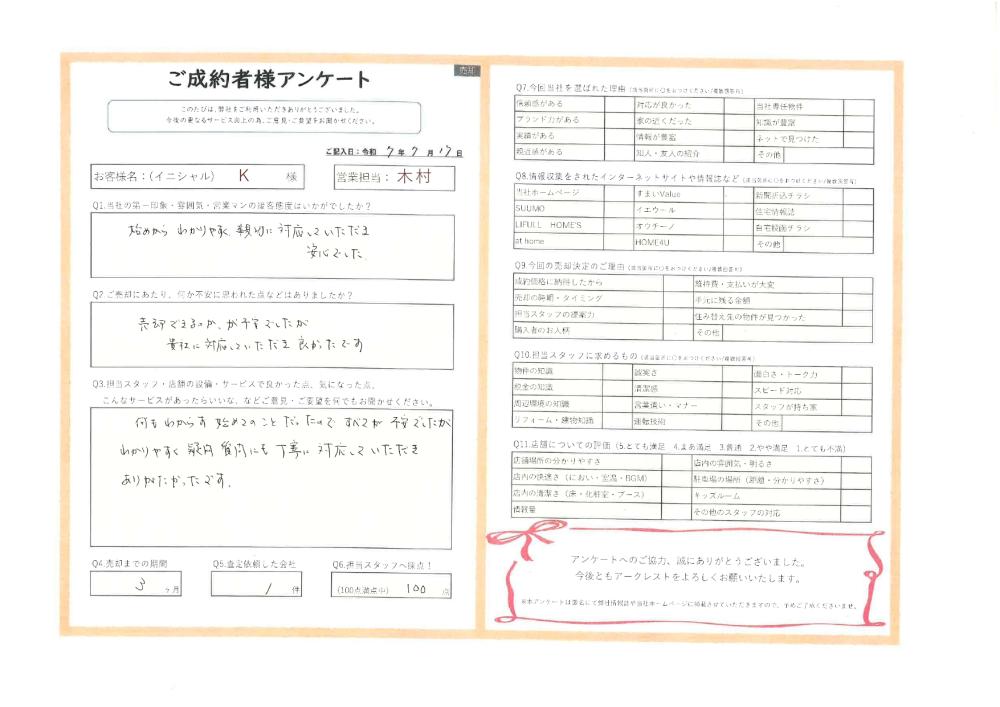 売却
ご成約者様アンケート
このたびは、弊社をご利用いただきありがとうございました。
今後の更なるサービス向上の為、ご意見・ご要望をお聞かせください。
ご記入日：令和 7年 7月 17日
お客様名：（イニシャル） K 様
営業担当： 木村
Q1.当社の第一印象・雰囲気・営業マンの接客態度はいかがでしたか？
始めから わかりやすく、親切に 対応していただき
安心でした。
Q2.ご売却にあたり、何か不安に思われた点などはありましたか？
売却できるのか、が不安でしたが
貴社に対応していただき 良かったです
Q3.担当スタッフ・店舗の設備・サービスで良かった点、気になった点、
こんなサービスがあったらいいな、などご意見・ご要望を何でもお聞かせください。
何もわからず 始めてのことだったので すべてが 不安でしたが
わかりやすく 疑問 質問にも 丁寧に 対応していただき
ありがたかったです。
Q4.売却までの期間
3 ヶ月
Q5.査定依頼した会社
1 件
Q6.担当スタッフへ採点！
(100点満点中) 100 点
Q7.今回当社を選ばれた理由（該当箇所に〇をおつけください/複数回答可）
信頼感がある 対応が良かった 当社専任物件
ブランド力がある 家の近くだった 知識が豊富
実績がある 情報が豊富 ネットで見つけた
親近感がある 知人・友人の紹介 その他
Q8.情報収集をされたインターネットサイトや情報誌など（該当箇所に〇をおつけください/複数回答可）
当社ホームページ すまいValue 新聞折込チラシ
SUUMO イエウール 住宅情報誌
LIFULL HOME'S オウチーノ 自宅投函チラシ
at home HOME4U その他
Q9.今回の売却決定のご理由（該当箇所に〇をおつけください/複数回答可）
成約価格に納得したから 維持費・支払いが大変
売却の時期・タイミング 手元に残る金額
担当スタッフの提案力 住み替え先の物件が見つかった
購入者のお人柄 その他
Q10.担当スタッフに求めるもの（該当箇所に〇をおつけください/複数回答可）
物件の知識 誠実さ 面白さ・トーク力
税金の知識 清潔感 スピード対応
周辺環境の知識 言葉遣い・マナー スタッフが持ち家
リフォーム・建物知識 運転技術 その他
Q11.店舗についての評価（5.とても満足 4.まあ満足 3.普通 2.やや満足 1.とても不満）
店舗場所の分かりやすさ 店内の雰囲気・明るさ
店内の快適さ（におい・室温・BGM） 駐車場の場所（距離・分かりやすさ）
店内の清潔さ（床・化粧室・ブース） キッズルーム
情報量 その他のスタッフの対応
アンケートへのご協力、誠にありがとうございました。
今後ともアークレストをよろしくお願いいたします。
※本アンケートは匿名にて弊社情報誌や当社ホームページに掲載させていただきますので、予めご了承くださいませ。